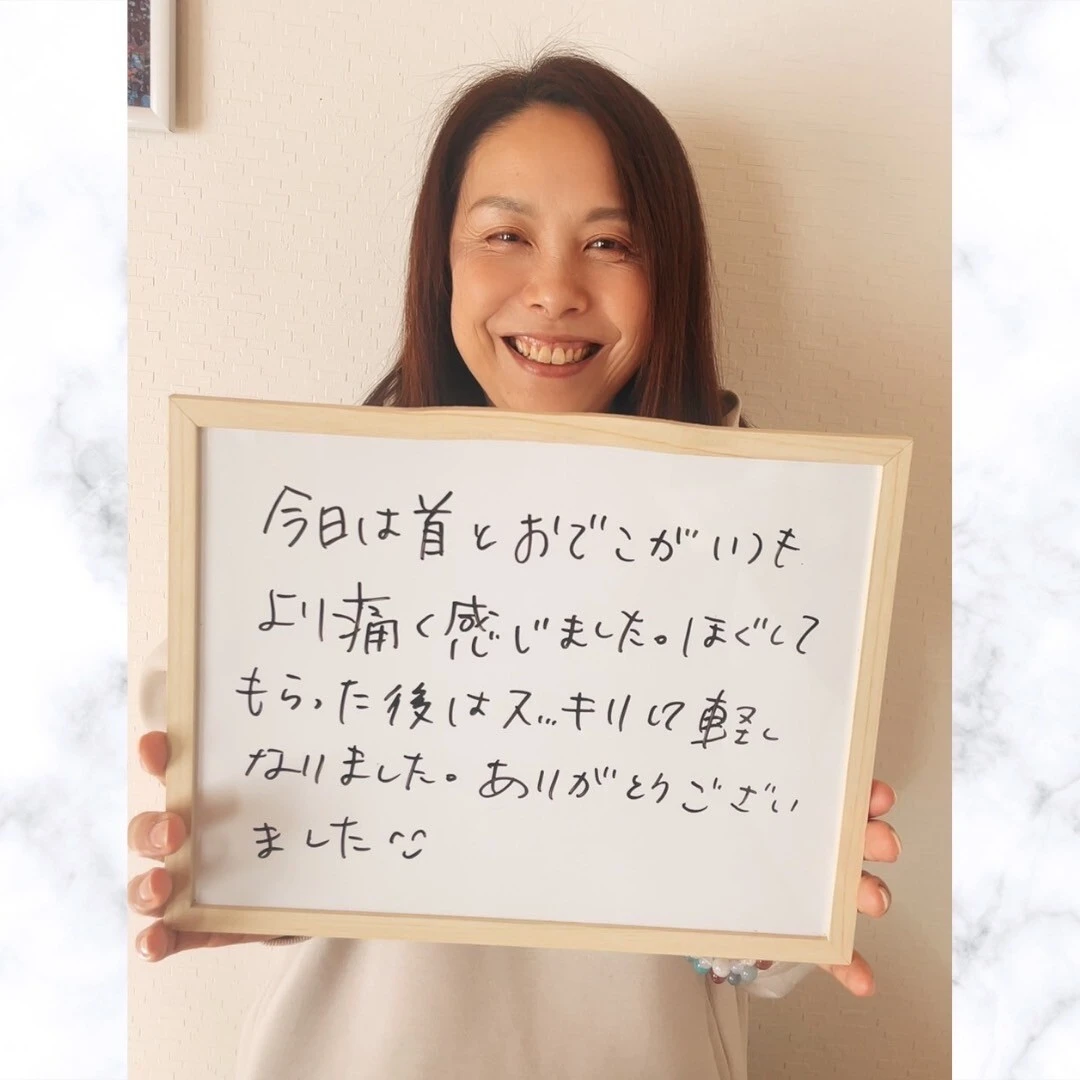 今日は首とおでこがいつも
より痛く感じました。ほぐして
もらった後はスッキリして軽く
なりました。ありがとうござい
ました^^